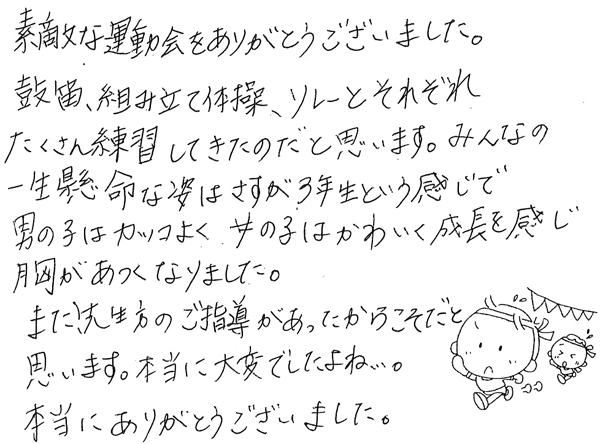 素敵な運動会をありがとうございました。
鼓笛、組み立て体操、リレーとそれぞれ
たくさん練習してきたのだと思います。みんなの
一生懸命な姿はさすが3年生という感じで
男の子はカッコよく 女の子はかわいく成長を感じ
胸があつくなりました。
また先生方のご指導があったからこそだと
思います。本当に大変でしたよね…。
本当にありがとうございました。